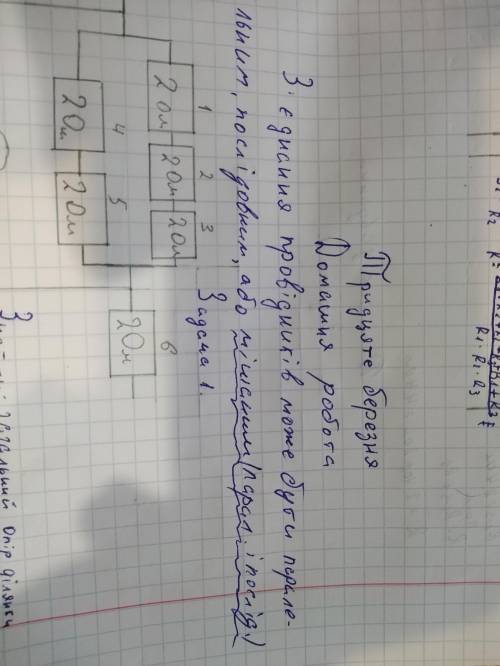 Тридцяте березня
Домашня робота
З'єднання провідників може бути парале-
льним, послідовним, або мішаним (парал. і послід.)
Задача 1.
1 2 3
2 Ом 2 Ом 2 Ом
6
2 Ом
4 5
2 Ом 2 Ом
загальний опір ділянки